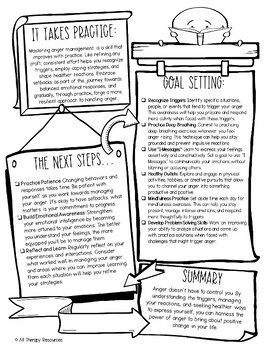 IT TAKES PRACTICE:
Mastering anger management is a skill that
improves with practice. Like refining any
craft, consistent effort helps you recognize
triggers, employ coping strategies, and
shape healthier reactions. Embrace
setbacks as part of the journey towards
balanced emotional responses, and,
through practice, forge a more
resilient approach to handling anger
THE NEXT STEPS...
Practice Patience: Changing behaviors and
responses takes time. Be patient with
yourself as you work towards managing
anger. It's okay to have setbacks; what
matters is your commitment to progress.
Build Emotional Awareness: Strengthen
your emotional intelligence by becoming
more attuned to your emotions. The better
you understand your feelings, the more
equipped you'll be to manage them
Reflect and Learn: Regularly reflect on your
experiences and interactions. Consider
when you worked well in managing your anger
and areas where you can improve. Learning
from each situation will help you refine
your strategies.
GOAL SETTING:
Recognize triggers: Identify specific situations,
people, or events that tend to trigger your anger.
This awareness will help you prepare and respond
more safely when faced with these triggers
Practice Deep Breathing: Commit to practicing
deep breathing exercises whenever you feel
anger rising. This technique can help you stay
grounded and prevent impulsive reactions
Use "I-Messages": Learn to express your feelings
assertively and constructively. Set a goal to use "I
Messages" to communicate your emotions without
blaming or accusing others.
Healthy Outlets: Explore and engage in physical
activities, hobbies, or creative pursuits that allow
you to channel your anger into something
productive and positive.
Mindfulness Practice: Set aside time each day for
mindfulness exercises. This can help you stay
present, manage intense emotions, and respond
more thoughtfully to triggers
Develop Problem-Solving Skills: Work on improving
your ability to analyze situations and come up
with practical solutions when faced with
challenges that might trigger anger
SUMMARY
Anger doesn't have to control you. By
understanding the triggers, managing
your reactions, and seeking healthier ways
to express yourself, you can harness the
power of anger to bring about positive
change in your life.
© All Therapy Resources